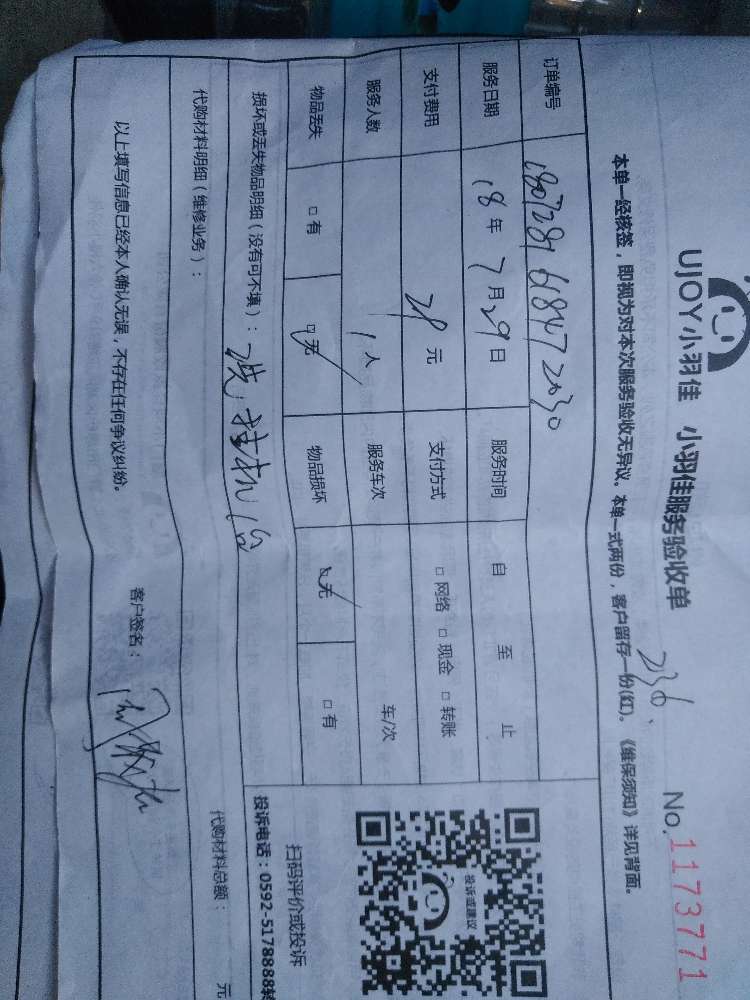 UJOY小羽佳 小羽佳服务验收单 No.1173771
2030
本单一经核签，即视为对本次服务验收无异议。本单一式两份，客户留存一份(红)。《维保须知》详见背面。
订单编号
服务日期 18年7月29日 服务时间 自 至 止
支付费用 元 支付方式 □网络 □现金 □转账
服务人数 1人 服务车次 车/次
物品丢失 □有 □无 物品损坏 □无 □有
损坏或丢失物品明细（没有可不填）：洗挂机1台
代购材料明细（维修业务）： 代购材料总额： 元
以上填写信息已经本人确认无误，不存在任何争议纠纷。
客户签名：
投诉或建议
扫码评价或投诉
投诉电话：0592-5178888转